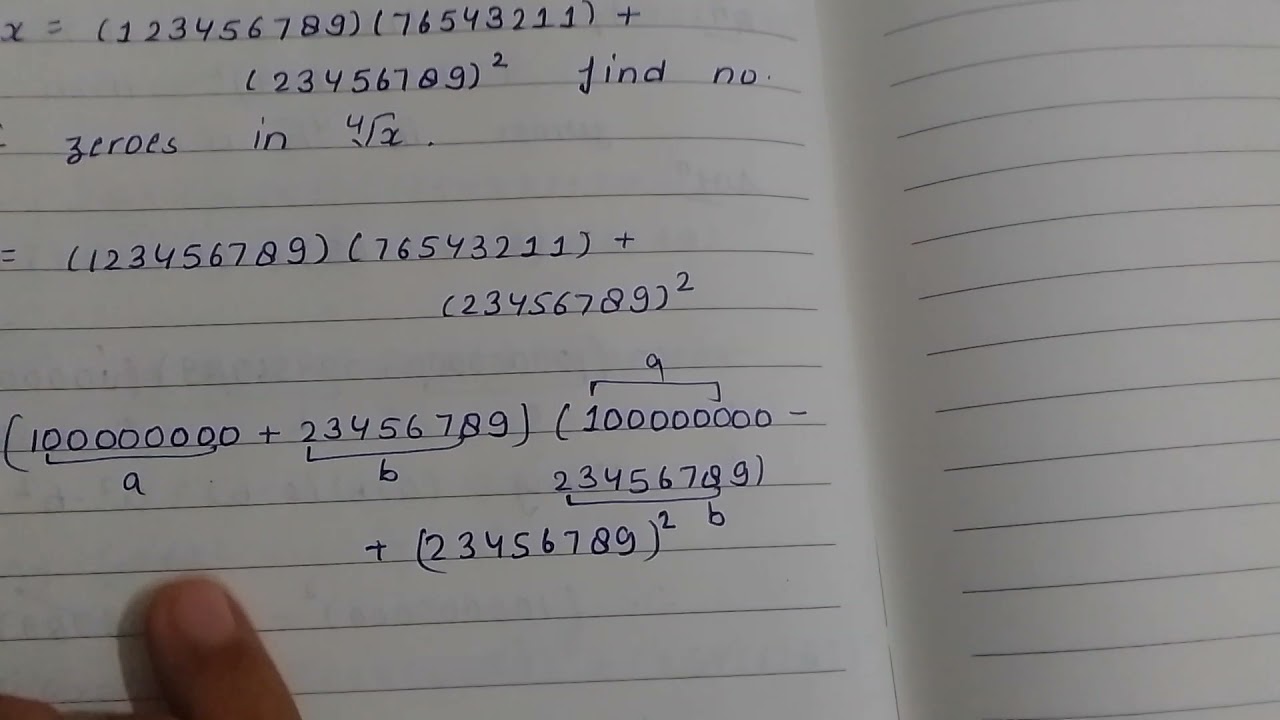 x = (123456789)(76543211) +
(23456789)² find no.
zeroes in ∜x .
= (123456789)(76543211) +
(23456789)²
a
(100000000 + 23456789) (100000000 -
a b 23456789)
b
+ (23456789)²